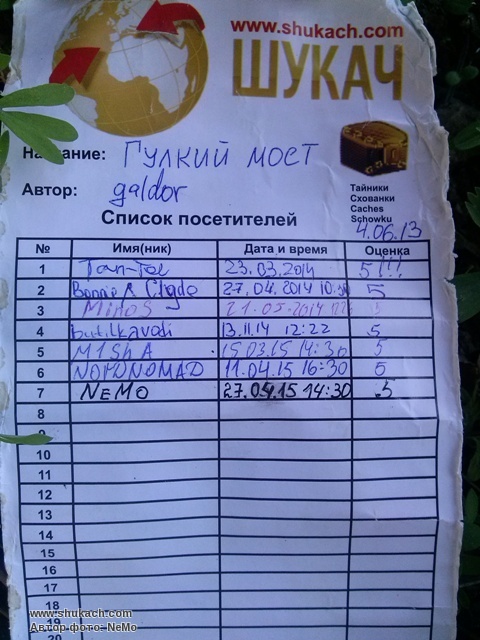 www.shukach.com
ШУКАЧ
Название: Гулкий мост
Автор: galdor
Тайники
Схованки
Caches
Schowku
4.06.13
Список посетителей
№ Имя(ник) Дата и время Оценка
1 Tan-Tol 23.03.2014 5!!!
2 Bonnie & Clyde 27.04.2014 10:30 5
3 MiNoS 21.05.2014 5
4 butilkavodi 13.11.14 12:22 5
5 M1ShA 15.03.15 14:30 5
6 NOMONOMAD 11.04.15 16:30 5
7 NeMo 27.04.15 14:30 5
8
9
10
11
12
13
14
15
16
17
18
19
20
www.shukach.com
Автор фото: NeMo